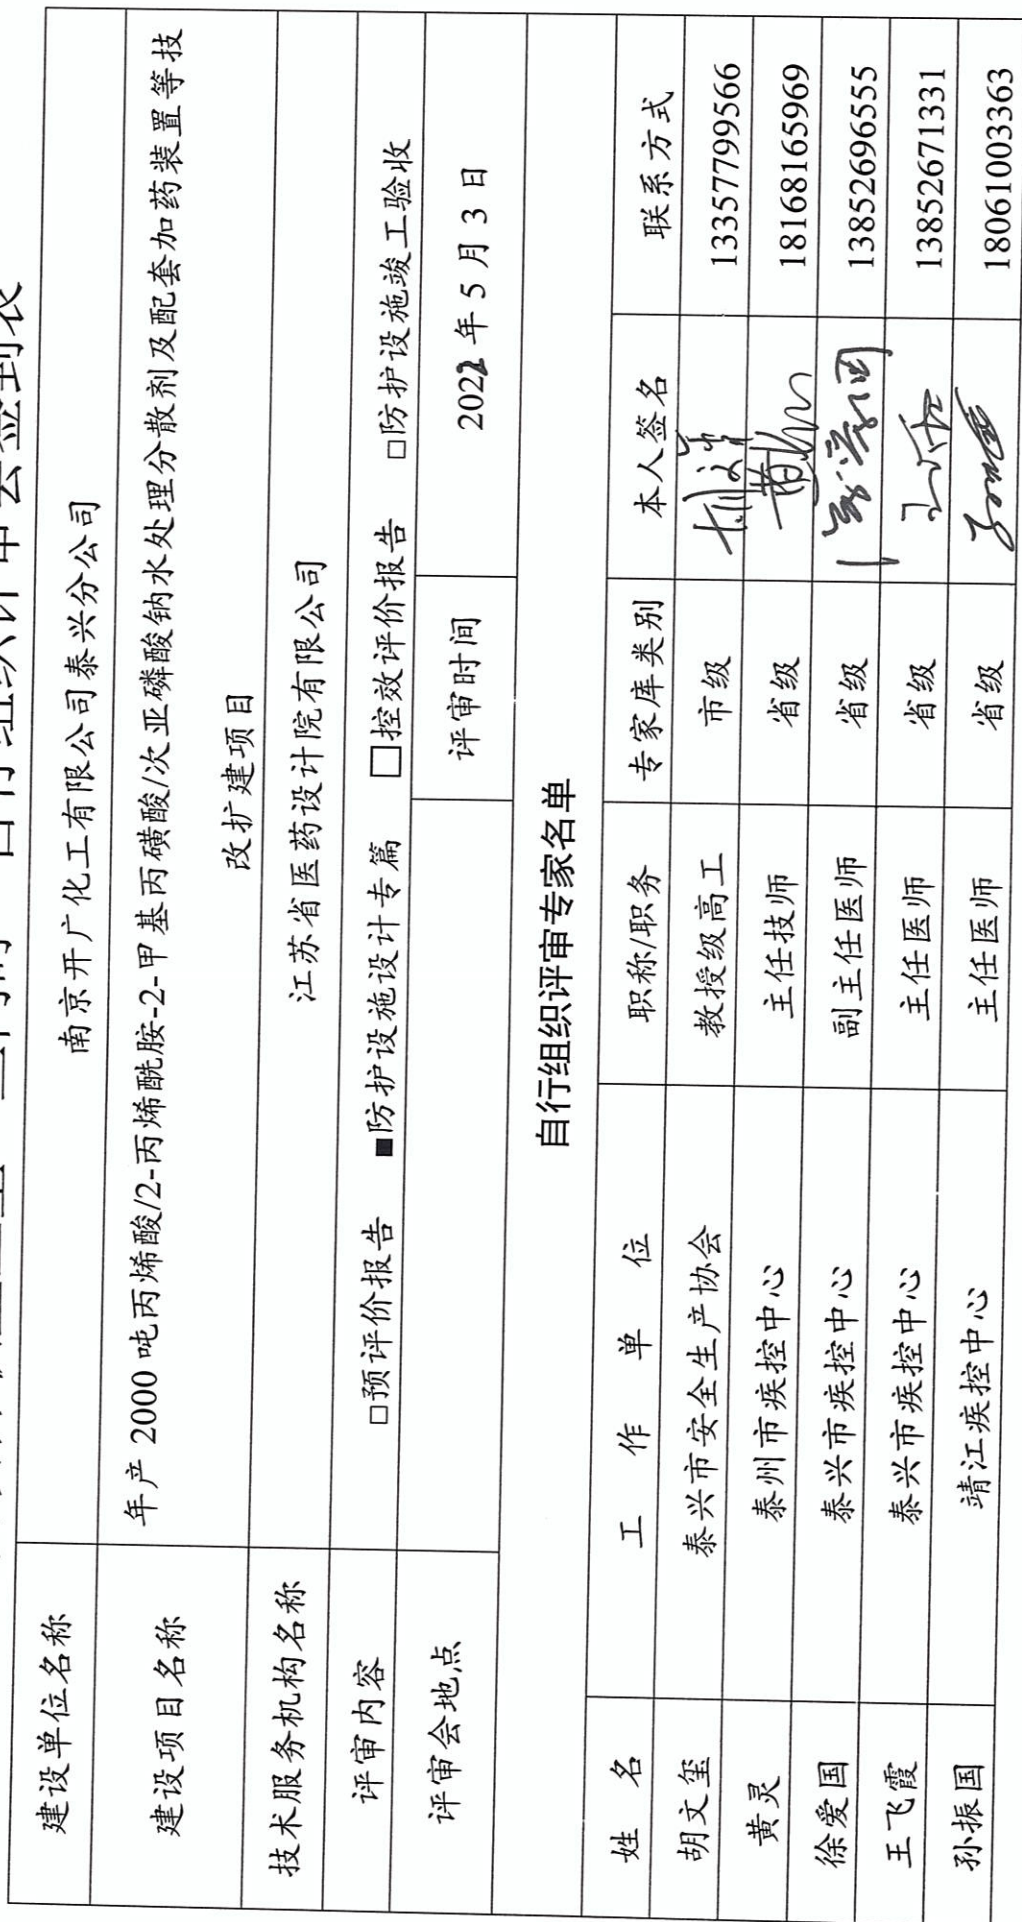 建设单位名称 南京开广化工有限公司泰兴分公司
建设项目名称 年产 2000 吨丙烯酸/2-丙烯酰胺-2-甲基丙磺酸/次亚磷酸钠水处理分散剂及配套加药装置等技
改扩建项目
技术服务机构名称 江苏省医药设计院有限公司
评审内容 □预评价报告 ■防护设施设计专篇 □控效评价报告 □防护设施竣工验收
评审会地点 评审时间 2022 年 5 月 3 日
自行组织评审专家名单
姓 名 工 作 单 位 职称/职务 专家库类别 本人签名 联系方式
胡文玺 泰兴市安全生产协会 教授级高工 市级 13357799566
黄灵 泰州市疾控中心 主任技师 省级 18168165969
徐爱国 泰兴市疾控中心 副主任医师 省级 13852696555
王飞霞 泰兴市疾控中心 主任医师 省级 13852671331
孙振国 靖江疾控中心 主任医师 省级 18061003363